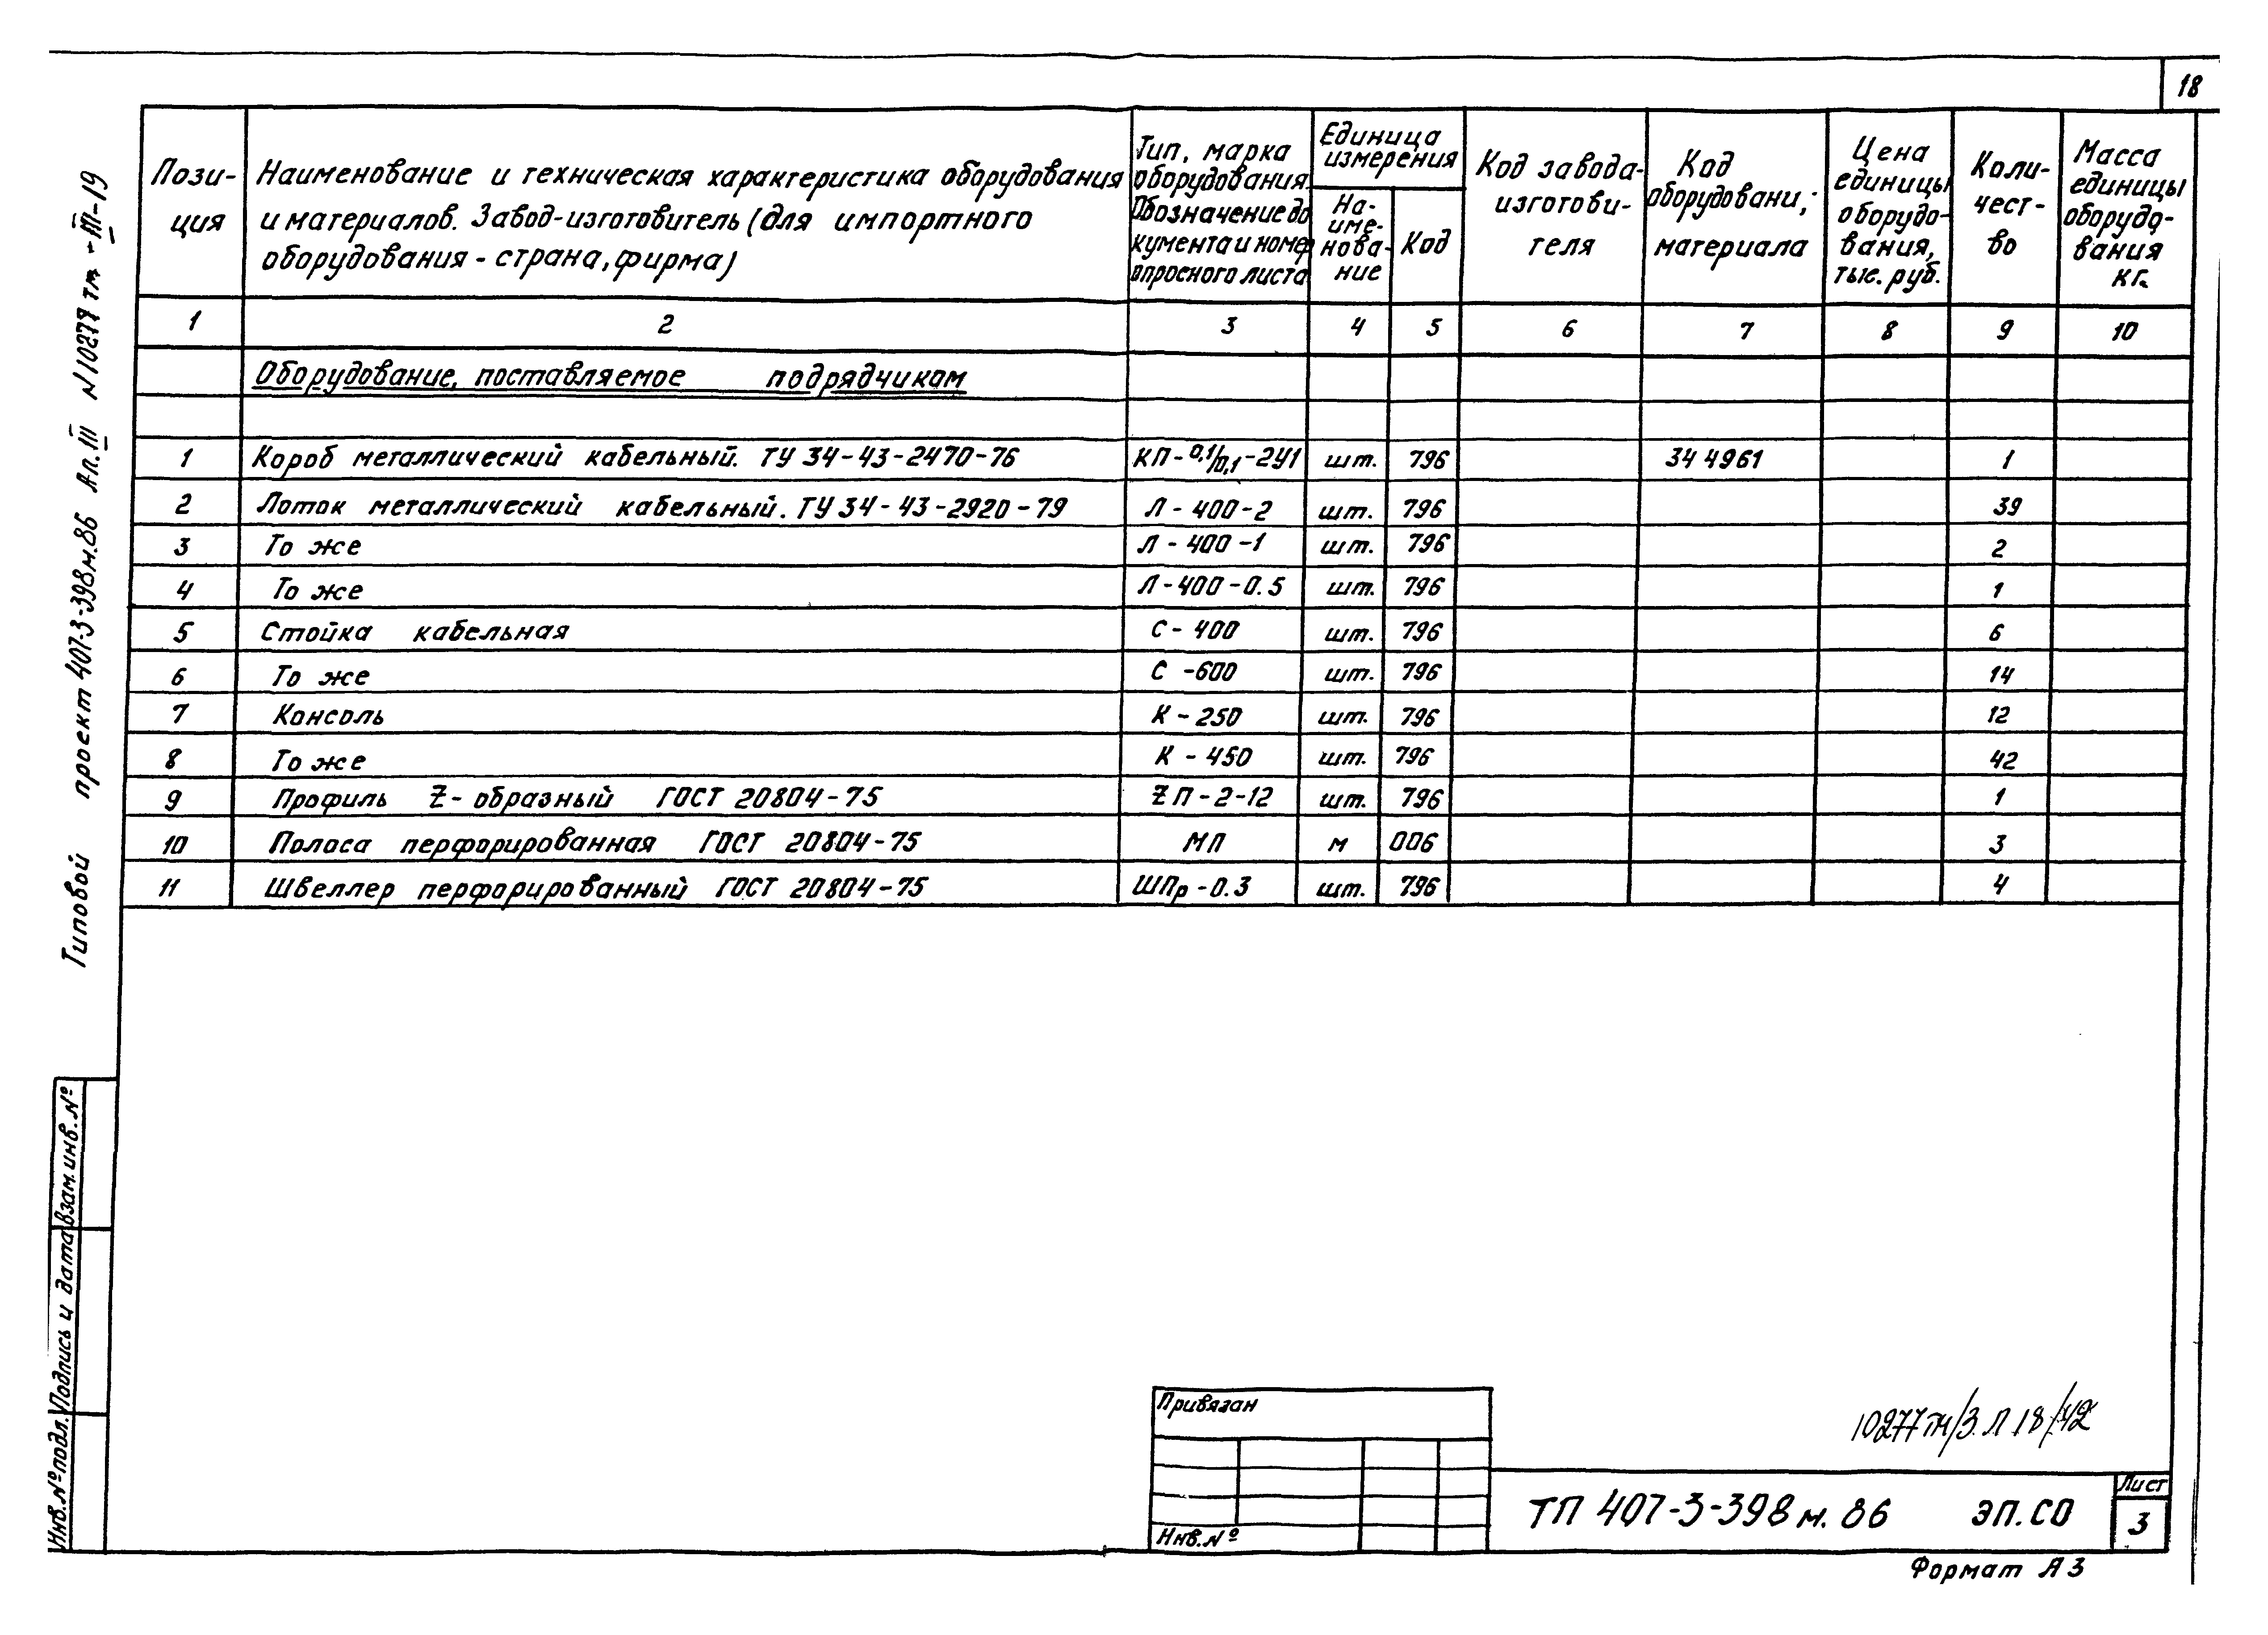 18
Пози-
ция
Наименование и техническая характеристика оборудования
и материалов. Завод-изготовитель (для импортного
оборудования - страна, фирма)
Тип, марка
оборудования.
Обозначение до
кумента и номер
опросного листа
Единица
измерения
На-
име-
нова-
ние
Код
Код завода-
изготови-
теля
Код
оборудовани,
материала
Цена
единицы
оборудо-
вания,
тыс. руб.
Коли-
чест-
во
Масса
единицы
оборудо-
вания
кг.
1 2 3 4 5 6 7 8 9 10
Оборудование, поставляемое подрядчиком
1 Короб металлический кабельный. ТУ 34-43-2470-76 КП-0,1/0,1-2У1 шт. 796 34 4961 1
2 Лоток металлический кабельный. ТУ 34-43-2920-79 Л-400-2 шт. 796 39
3 То же Л-400-1 шт. 796 2
4 То же Л-400-0.5 шт. 796 1
5 Стойка кабельная С-400 шт. 796 6
6 То же С-600 шт. 796 14
7 Консоль К-250 шт. 796 12
8 То же К-450 шт. 796 42
9 Профиль Z-образный ГОСТ 20804-75 ZП-2-12 шт. 796 1
10 Полоса перфорированная ГОСТ 20804-75 МП м 006 3
11 Швеллер перфорированный ГОСТ 20804-75 ШПр-0.3 шт. 796 4
Типовой проект 407-3-398м.86 Ал. III N10277 тм-III-19
Взам.инв.№
Подпись и дата
Инв.№подл.
Привязан
Инв.№
10277тм/3 Л 18/42
ТП 407-3-398 м. 86 ЭП.СО
Лист
3
Формат А3